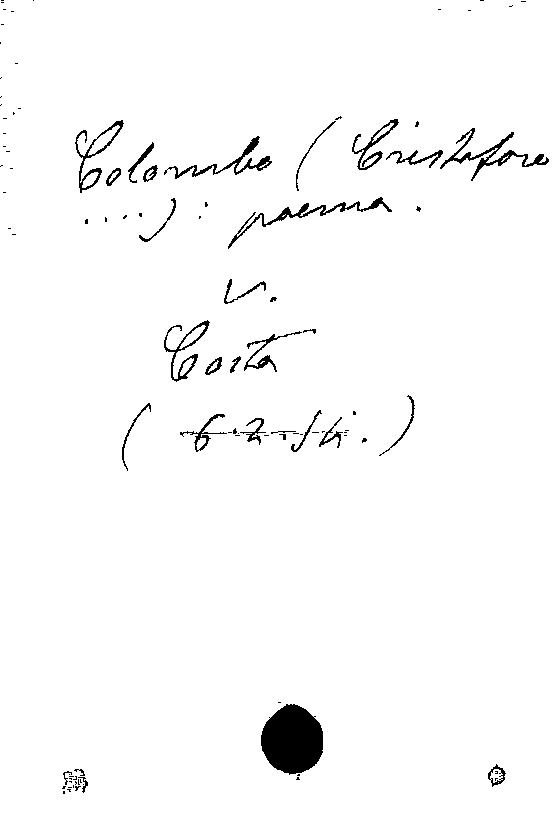 Colombo (Cristoforo
....): poema.
v.
Costa
( 6.2.14. )